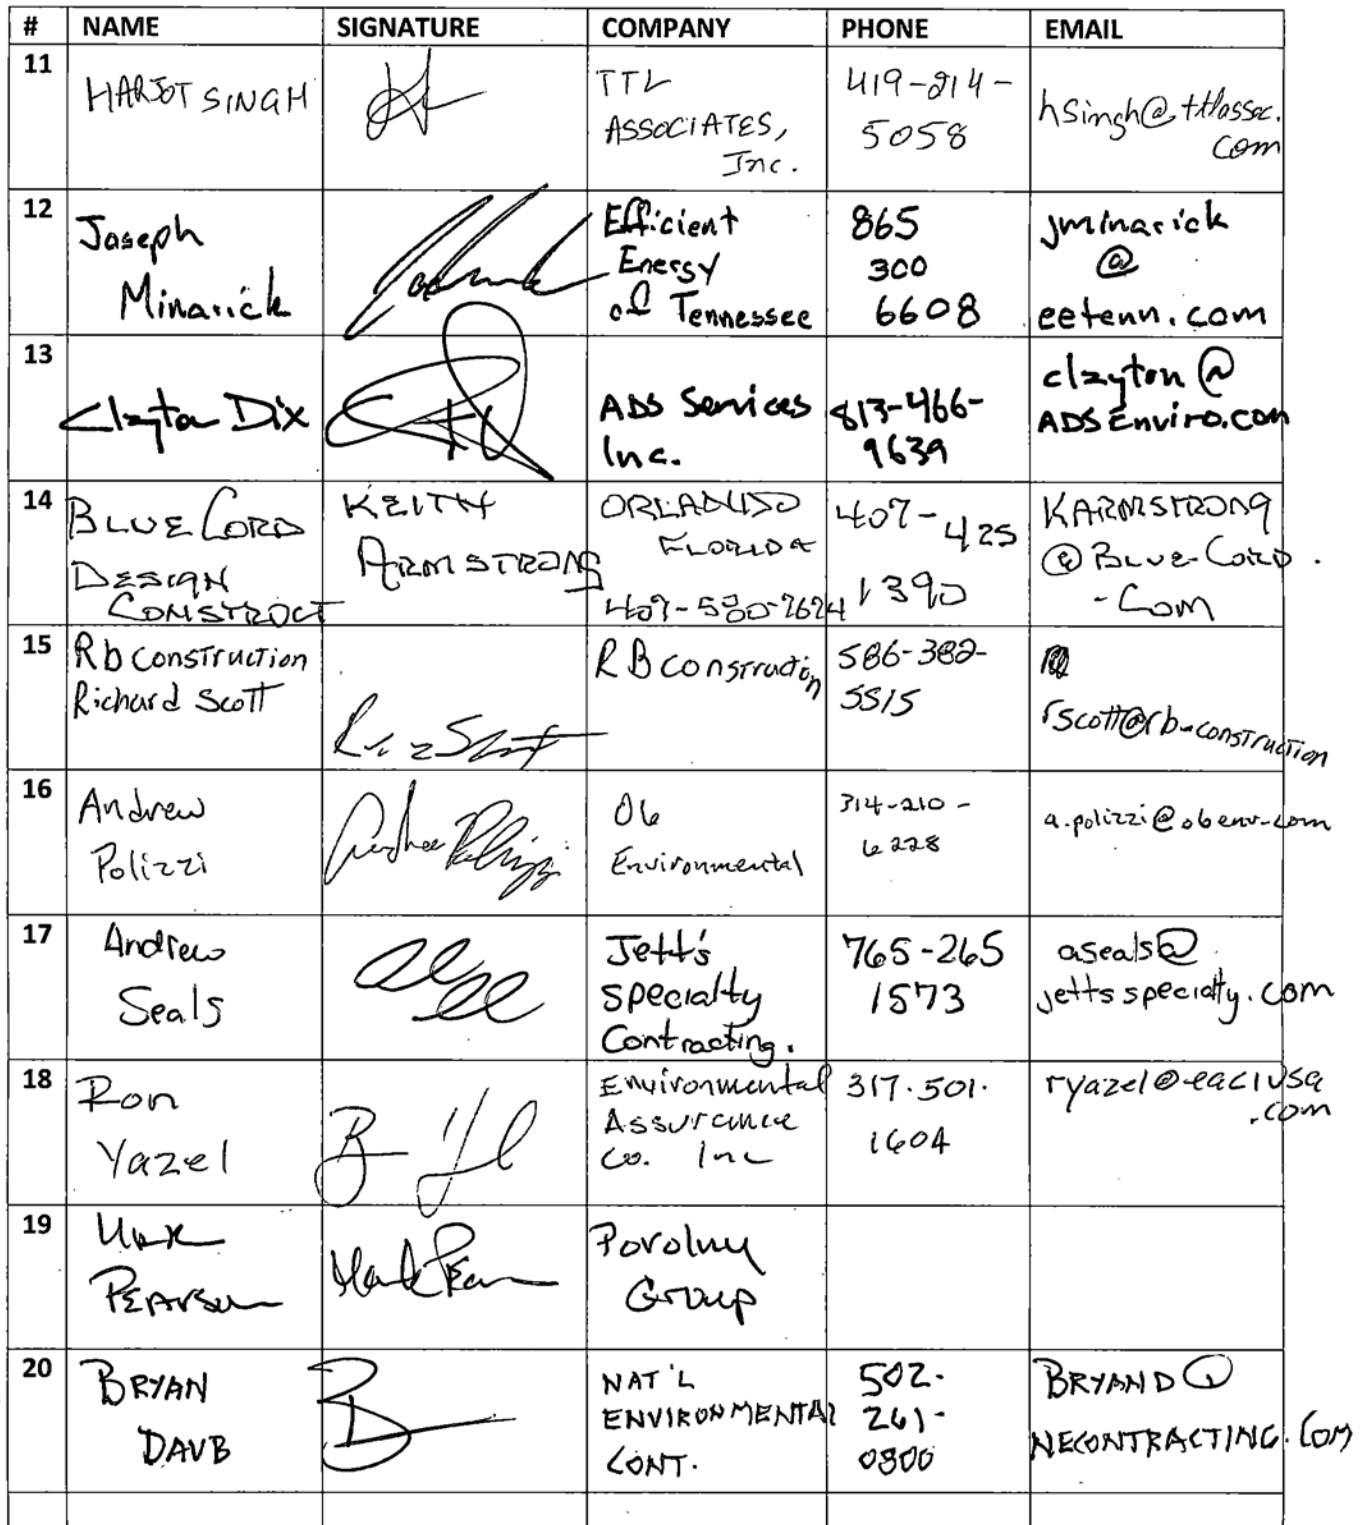 # NAME SIGNATURE COMPANY PHONE EMAIL
11
HARJOT SINGH
TTL
ASSOCIATES,
Inc.
419-214-
5058
hsingh@ttlassoc.
com
12
Joseph
Minarick
Efficient
Energy
of Tennessee
865
300
6608
jminarick
@
eetenn.com
13
Clayton Dix
ADS Services
Inc.
813-466-
9639
clayton@
ADSEnviro.com
14
BLUE CORD
DESIGN
CONSTRUCT
KEITH
ARMSTRONG
ORLANDO
FLORIDA
407-580-7624
407-425
1390
KARMSTRONG
@BLUE-CORD.
-COM
15
Rb construction
Richard Scott
RB construction
586-382-
5515
rscott@rb-construction
16
Andrew
Polizzi
Andrew Polizzi
OB
Environmental
314-210-
6228
a.polizzi@obenv.com
17
Andrew
Seals
Jett's
Specialty
Contracting.
765-265
1573
aseals@
jettsspecialty.com
18
Ron
Yazel
Environmental
Assurance
Co. Inc
317.501.
1604
ryazel@eaciusa
.com
19
Mark
PEARSON
Mark Pearson
Povolny
Group
20
BRYAN
DAUB
NAT'L
ENVIRONMENTAL
CONT.
502-
261-
0800
BRYAND@
NECONTRACTING.COM